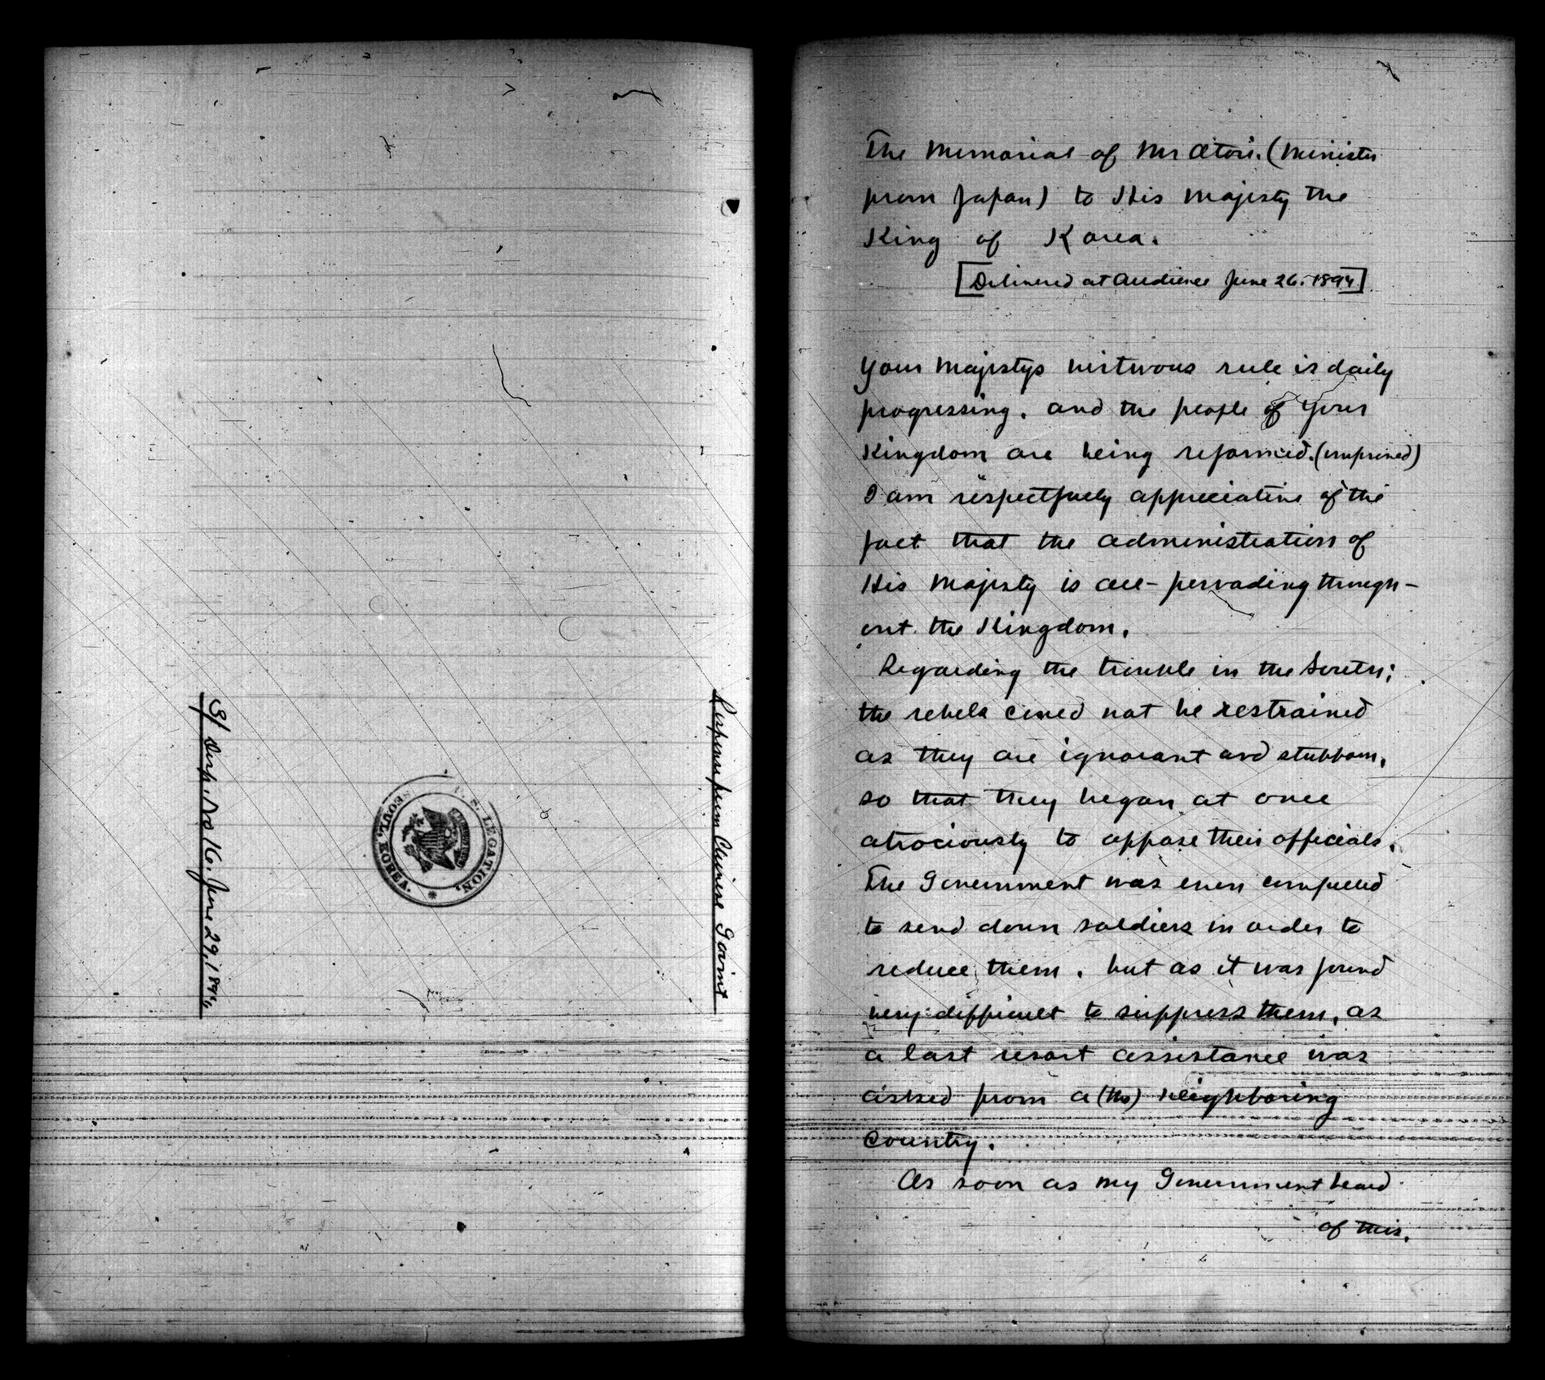 Response from Chinese Govmt
U.S. LEGATION,
SEOUL, KOREA.
Disp. No 16. June 29, 1894
The Memorial of Mr Otori. (Minister
from Japan) to His Majesty the
King of Korea.
[Delivered at Audience June 26. 1894]
Your Majestys virtuous rule is daily
progressing. and the people of Your
Kingdom are being reformed. (improved)
I am respectfully appreciative of the
fact that the administration of
His Majesty is all-pervading through-
out the Kingdom.
Regarding the trouble in the South;
the rebels could not be restrained
as they are ignorant and stubborn,
so that they began at once
atrociously to oppose their officials.
The Government was even compelled
to send down soldiers in order to
reduce them. but as it was found
very difficult to suppress them, as
a last resort assistance was
asked from a (the) neighboring
Country.
As soon as my Government heard
of this.